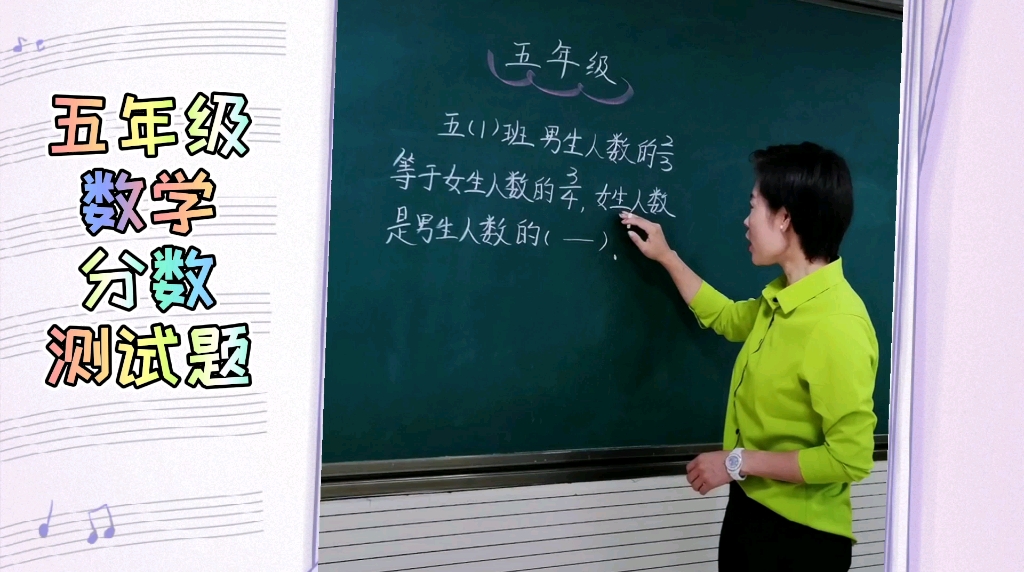 五年级
数学
分数
测试题
五年级
五(1)班男生人数的2/3
等于女生人数的3/4,女生人数
是男生人数的( — ).